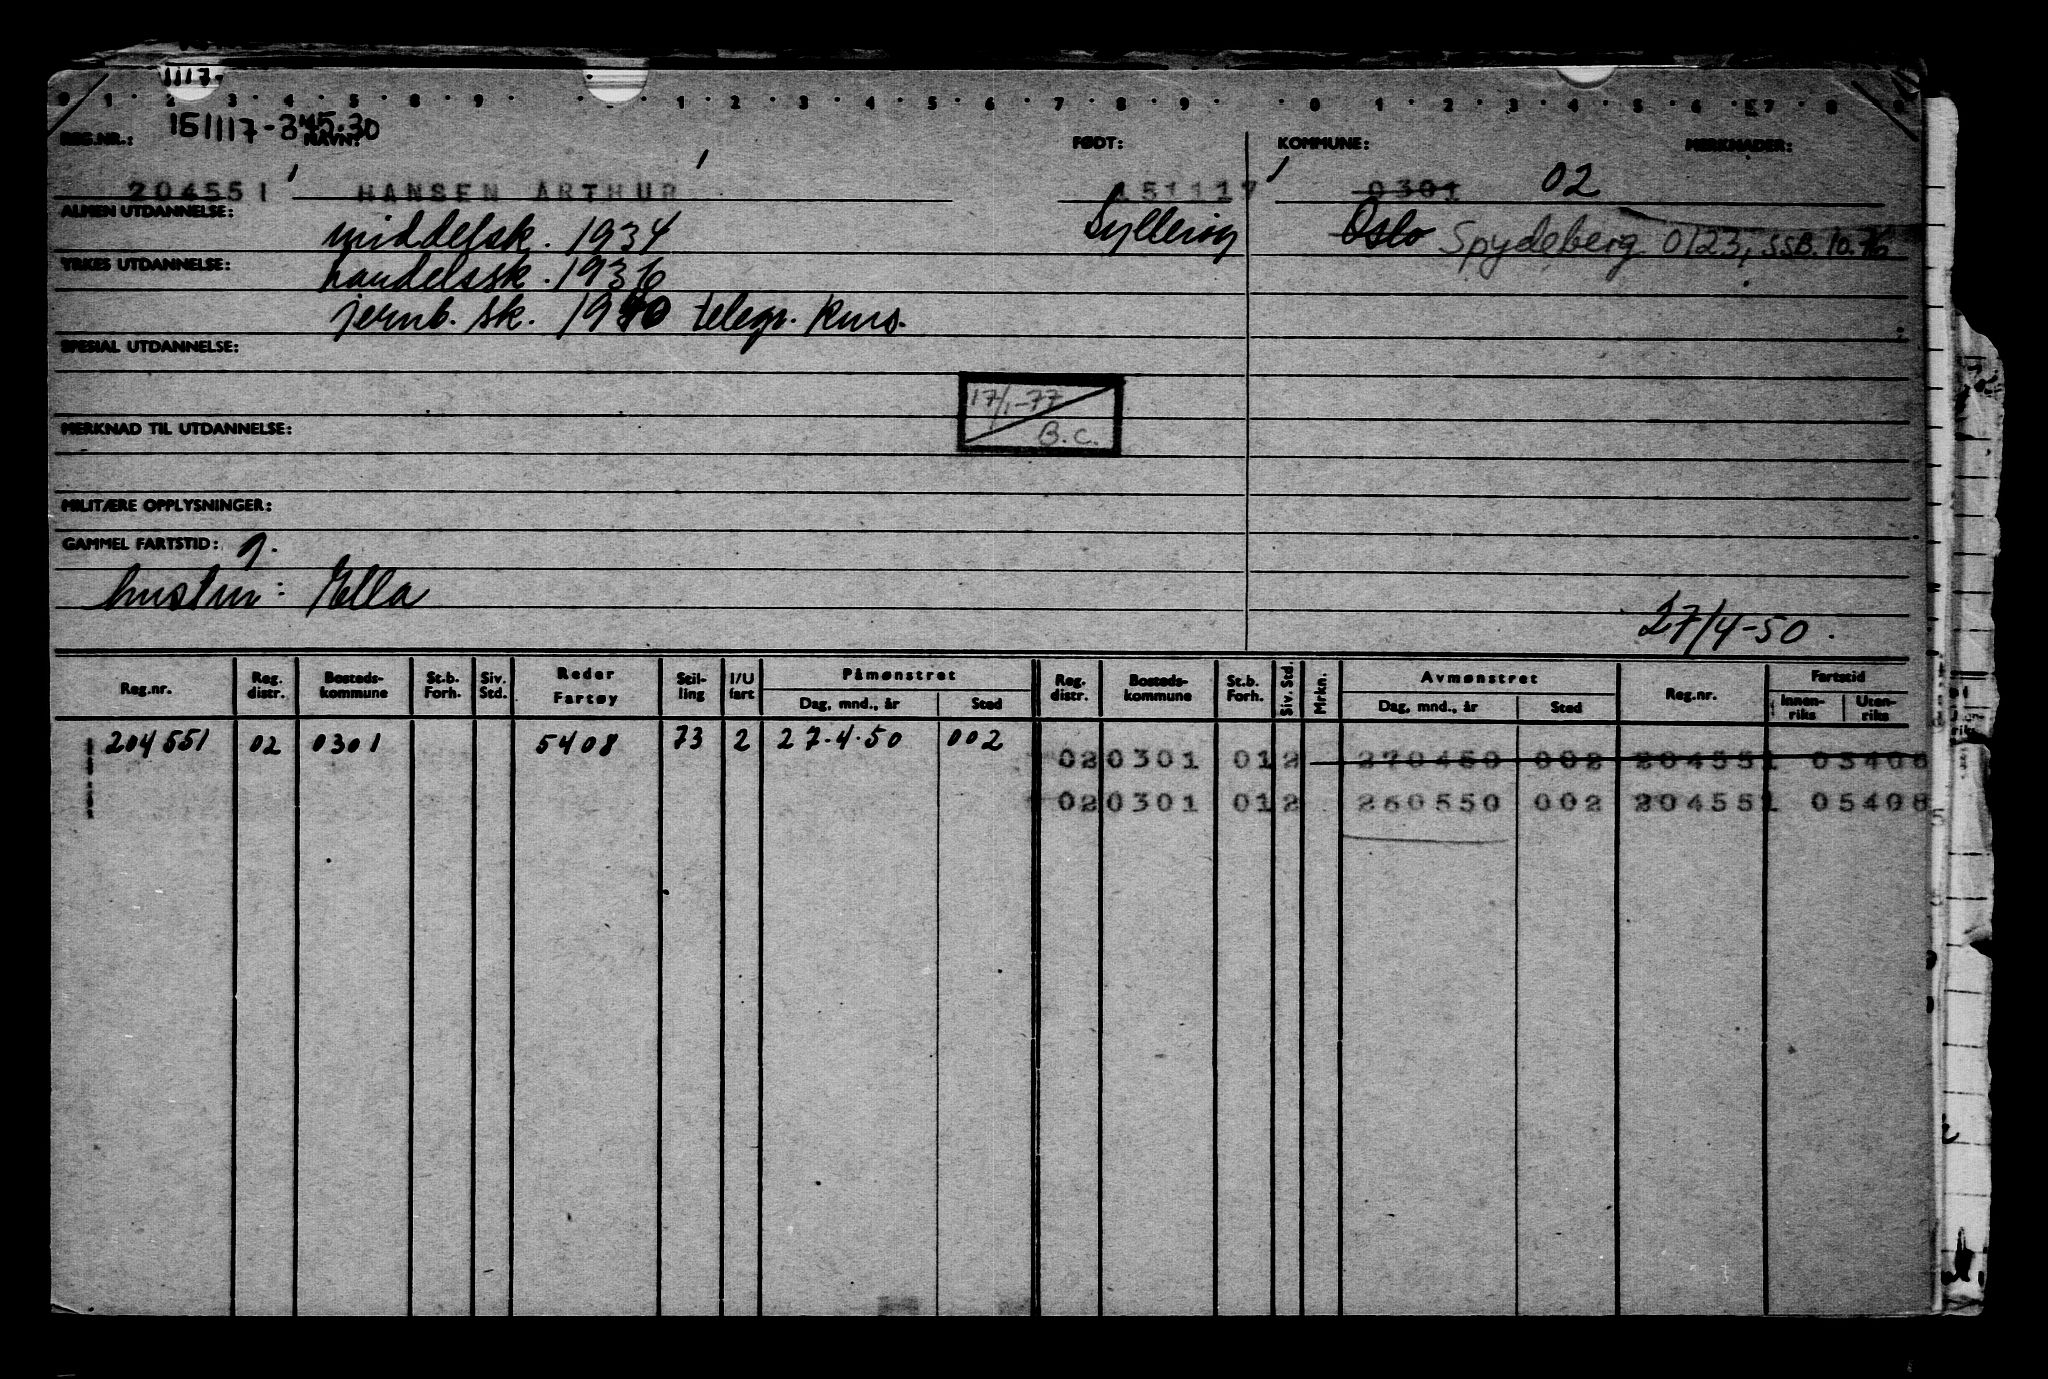 1117
0 1 2 3 4 5 6 7 8 9 1 2 3 4 5 6 7 8 9 0 1 2 3 4 5 6 7 8 9
151117-345.30
REG.NR.: NAVN: FØDT: KOMMUNE: MERKNADER:
204551 HANSEN ARTHUR 151117 0301 02
ALMEN UTDANNELSE: middelsk. 1934 Sylling Oslo Spydeberg 0123, SSB. 10.76
YRKES UTDANNELSE: handelssk. 1936
jernb. sk. 1940 telegr. kurs.
SPESIAL UTDANNELSE:
17/1-77
B.C.
MERKNAD TIL UTDANNELSE:
MILITÆRE OPPLYSNINGER:
GAMMEL FARTSTID: g.
hustru: Ella
27/4-50.
Reg.nr. Reg. distr. Bosteds-kommune St.b. Forh. Siv. Std. Reder Fartøy Stil-ling I/U fart Påmønstret Dag, mnd., år Sted Reg. distr. Bosteds-kommune St.b. Forh. Siv. Std. Mrkn. Avmønstret Dag, mnd., år Sted Reg.nr. Fartstid Innen-riks Uten-riks
204551 02 0301 5408 73 2 27.4.50 002
02 0301 01 2 270450 002 204551 05408
02 0301 01 2 260550 002 204551 05408